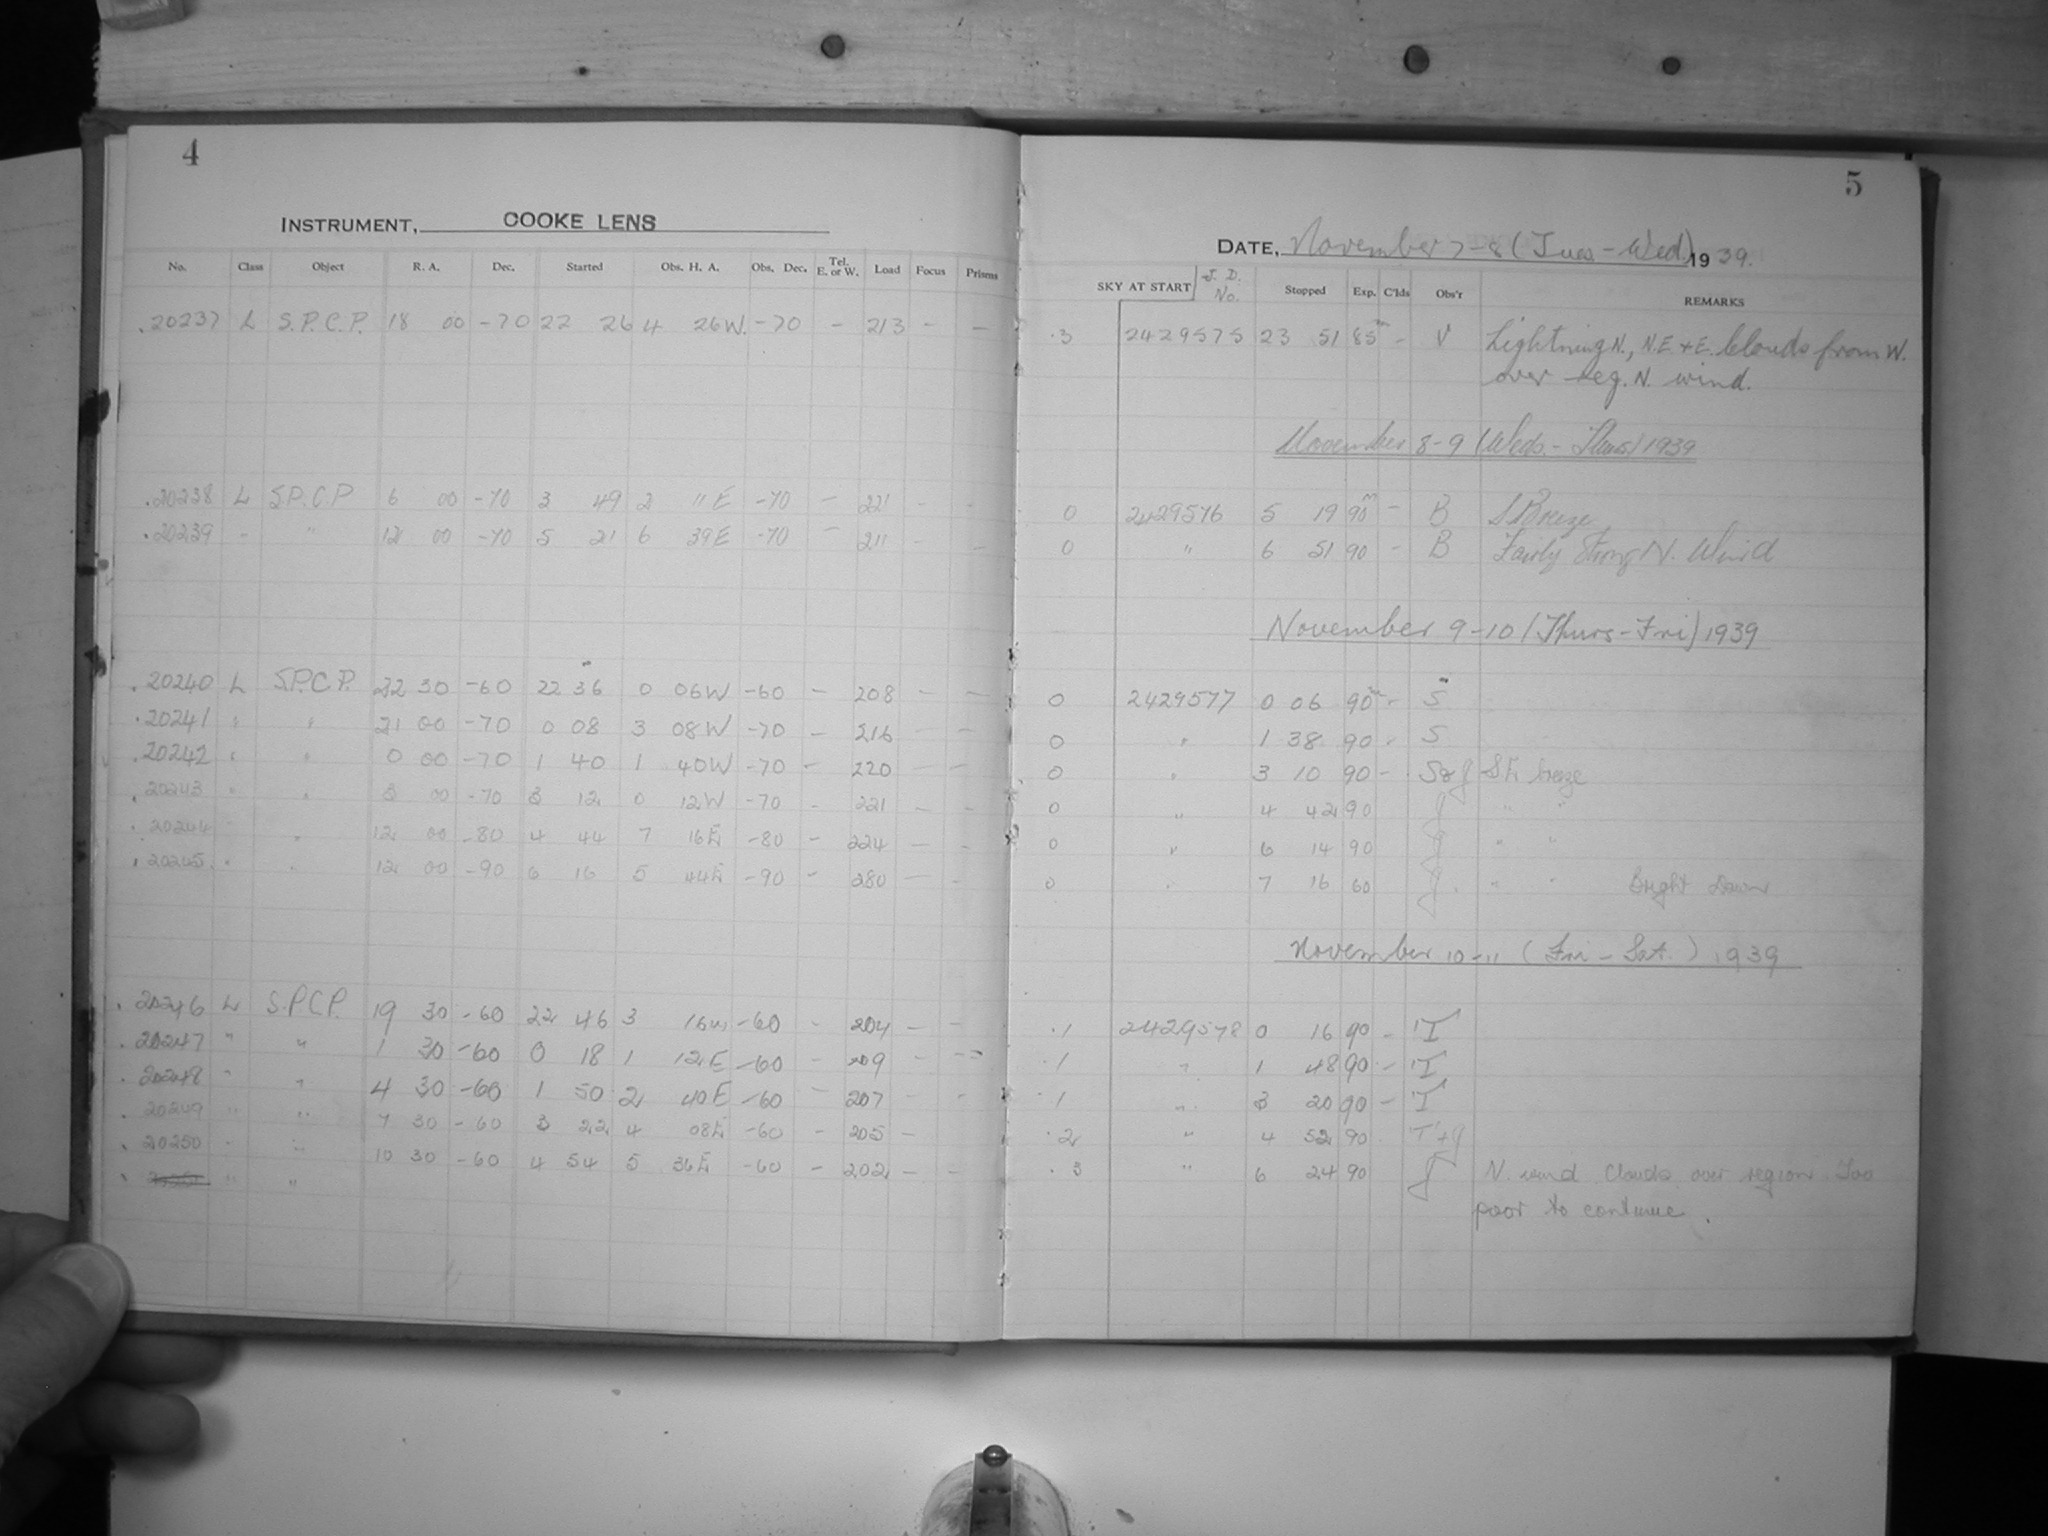 4
INSTRUMENT, COOKE LENS
No. Class Object R. A. Dec. Started Obs. H. A. Obs. Dec. Tel. E. or W. Load Focus Prisms
.20237 L S.P.C.P. 18 00 -70 22 26 4 26W. -70 - 213 - -
.20238 L S.P.C.P 6 00 -70 3 49 2 11E -70 - 221 - -
.20239 " " 12 00 -70 5 21 6 39E -70 - 211 - -
.20240 L S.P.C.P. 22 30 -60 22 36 0 06W -60 - 208 - -
.20241 " " 21 00 -70 0 08 3 08W -70 - 216 - -
.20242 " " 0 00 -70 1 40 1 40W -70 - 220 - -
.20243 " " 3 00 -70 3 12 0 12W -70 - 221 - -
.20244 " " 12 00 -80 4 44 7 16E -80 - 224 - -
.20245 " " 12 00 -90 6 16 5 44E -90 - 280 - -
.20246 L S.P.C.P. 19 30 -60 22 46 3 16W -60 - 204 - -
.20247 " " 1 30 -60 0 18 1 12E -60 - 209 - --
.20248 " " 4 30 -60 1 50 2 40E -60 - 207 - -
.20249 " " 7 30 -60 3 22 4 08E -60 - 205 -
.20250 " " 10 30 -60 4 54 5 36E -60 - 202 - -
" "
5
DATE, November 7-8 (Tues-Wed) 1939.
SKY AT START J. D. No. Stopped Exp. C'lds Obs'r REMARKS
.3 2429575 23 51 85m - V Lightning N., N.E + E. Clouds from W.
over reg. N. wind.
November 8-9 (Weds.-Thurs) 1939
0 2429576 5 19 90m - B S Breeze
0 " 6 51 90 - B Fairly Strong N. Wind
November 9-10 (Thurs-Fri) 1939
0 2429577 0 06 90m - S
0 " 1 38 90 - S
0 " 3 10 90 - S&J SE breeze
0 " 4 42 90 J " "
0 " 6 14 90 J " "
0 " 7 16 60 J " " Bright Dawn
November 10-11 (Fri-Sat.) 1939
.1 2429578 0 16 90 - T
.1 " 1 48 90 - T
.1 " 3 20 90 - T
.2 " 4 52 90 T+J
.3 " 6 24 90 J N. wind Clouds over region Too
poor to continue.